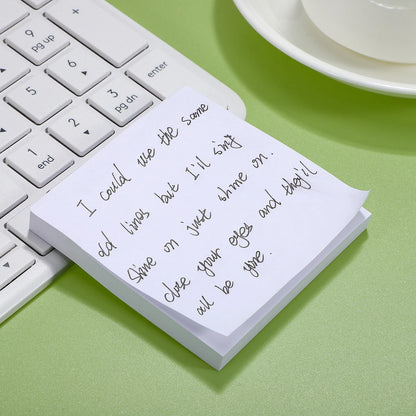 9
pg up
5
6
enter
1
end
2
3
pg dn
I could use the same
old lines but I'll sing
Shine on just shine on.
close your eyes and they'll
all be gone.